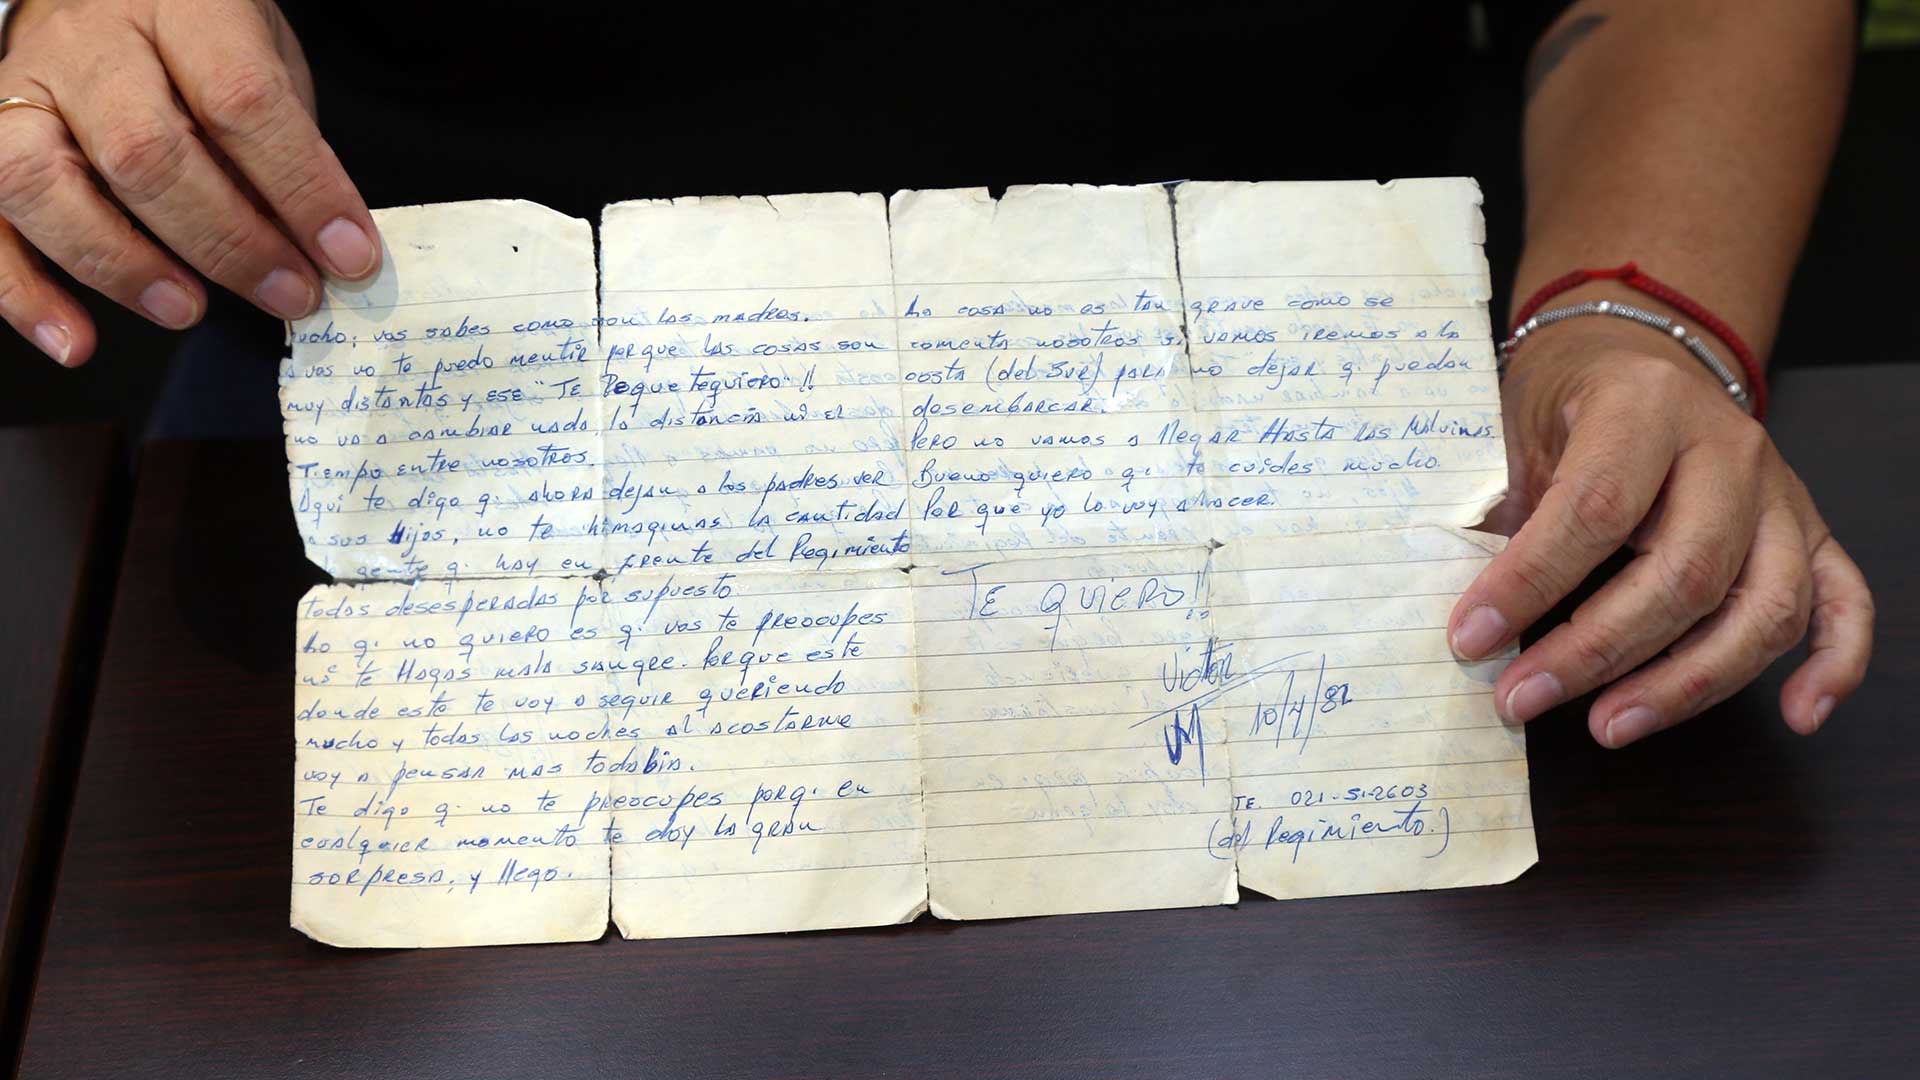 mucho; vos sabes como son las madres.
A vos no te puedo mentir porque las cosas son
muy distantas y ESE "TE Peque tequiero"!!
no va a cambiar nada, la distancia ni el
Tiempo entre nosotros.
Aqui te digo q. ahora dejan a los padres ver
a sus Hijos, no te himaginas la cantidad
de gente q. hay en frente del Regimiento
todas desesperadas por supuesto.
Lo q. no quiero es q. vos te preocupes
ne te Hagas mala sangre. Porque este
donde este te voy a seguir queriendo
mucho y todas las noches al acostarme
voy a pensar mas todabia.
Te digo q. no te preocupes porq. en
cualquier momento te doy la gran
sorpresa, y llego.
La cosa no es tan grave como se
comenta nosotros si vamos iremos a la
costa (del Sur) para no dejar q. puedan
desembarcar.
Pero no vamos a llegar Hasta las Malvinas.
Bueno quiero q. te cuides mucho.
Por que yo lo voy a hacer.
TE QUIERO!!
Victor
10/4/82
TE. 021-51-2603
(del Regimiento.)